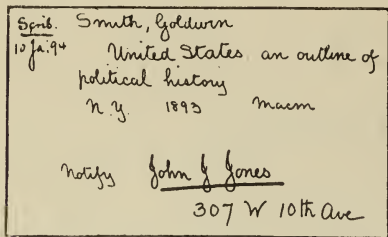 Scrib. Smith, Goldwin
10 Ja. '94 United States, an outline of
political history
N.Y. 1893 Macm
Notify John J Jones
307 W 10th Ave